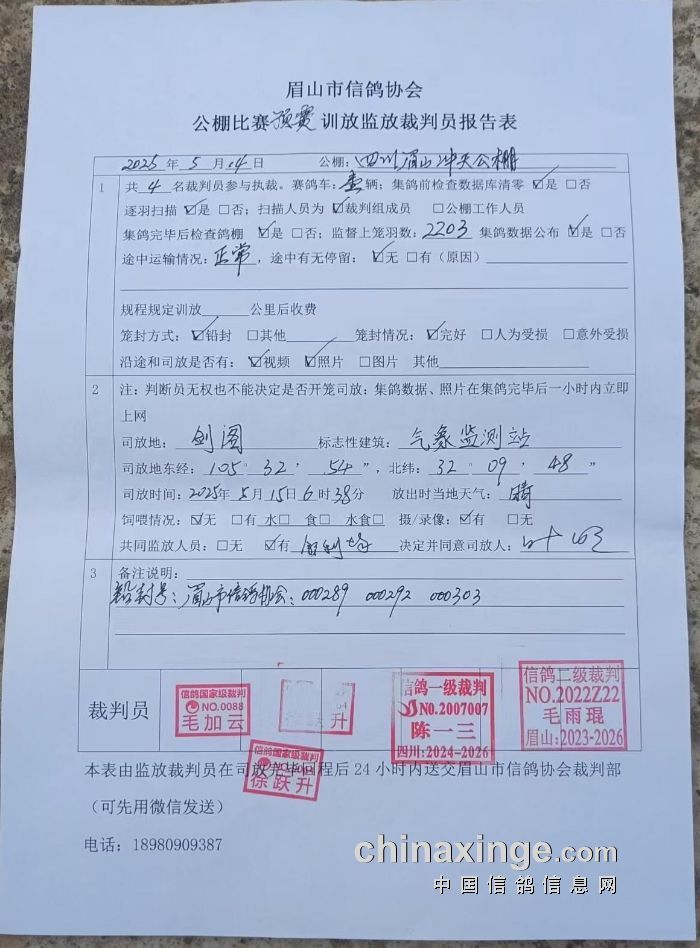 眉山市信鸽协会
公棚比赛预赛训放监放裁判员报告表
2025年5月14日 公棚：四川眉山冲天公棚
1 共4名裁判员参与执裁。赛鸽车：壹辆；集鸽前检查数据库清零 ☑是 □否
逐羽扫描 ☑是 □否；扫描人员为 ☑裁判组成员 □公棚工作人员
集鸽完毕后检查鸽棚 ☑是 □否；监督上笼羽数：2203 集鸽数据公布 ☑是 □否
途中运输情况：正常，途中有无停留：☑无 □有（原因）
规程规定训放 公里后收费
笼封方式：☑铅封 □其他 笼封情况：☑完好 □人为受损 □意外受损
沿途和司放是否有：☑视频 ☑照片 □图片 其他
2 注：判断员无权也不能决定是否开笼司放；集鸽数据、照片在集鸽完毕后一小时内立即
上网
司放地：剑阁 标志性建筑：气象监测站
司放地东经：105°32′54″，北纬：32°09′48″
司放时间：2025年5月15日6时38分 放出时当地天气：晴
饲喂情况：☑无 □有 水□ 食□ 水食□ 摄/录像：☑有 □无
共同监放人员：□无 ☑有 决定并同意司放人：
3 备注说明：
铅封号：眉山市信鸽协会：000289 000292 000303
裁判员
信鸽国家级裁判
NO.0088
毛加云
升
信鸽一级裁判
NO.2007007
陈一三
四川：2024-2026
信鸽二级裁判
NO.2022Z22
毛雨琨
眉山：2023-2026
信鸽国家级裁判
徐跃升
本表由监放裁判员在司放完毕回程后24小时内送交眉山市信鸽协会裁判部
（可先用微信发送）
电话：18980909387
chinaxinge.com
中国信鸽信息网